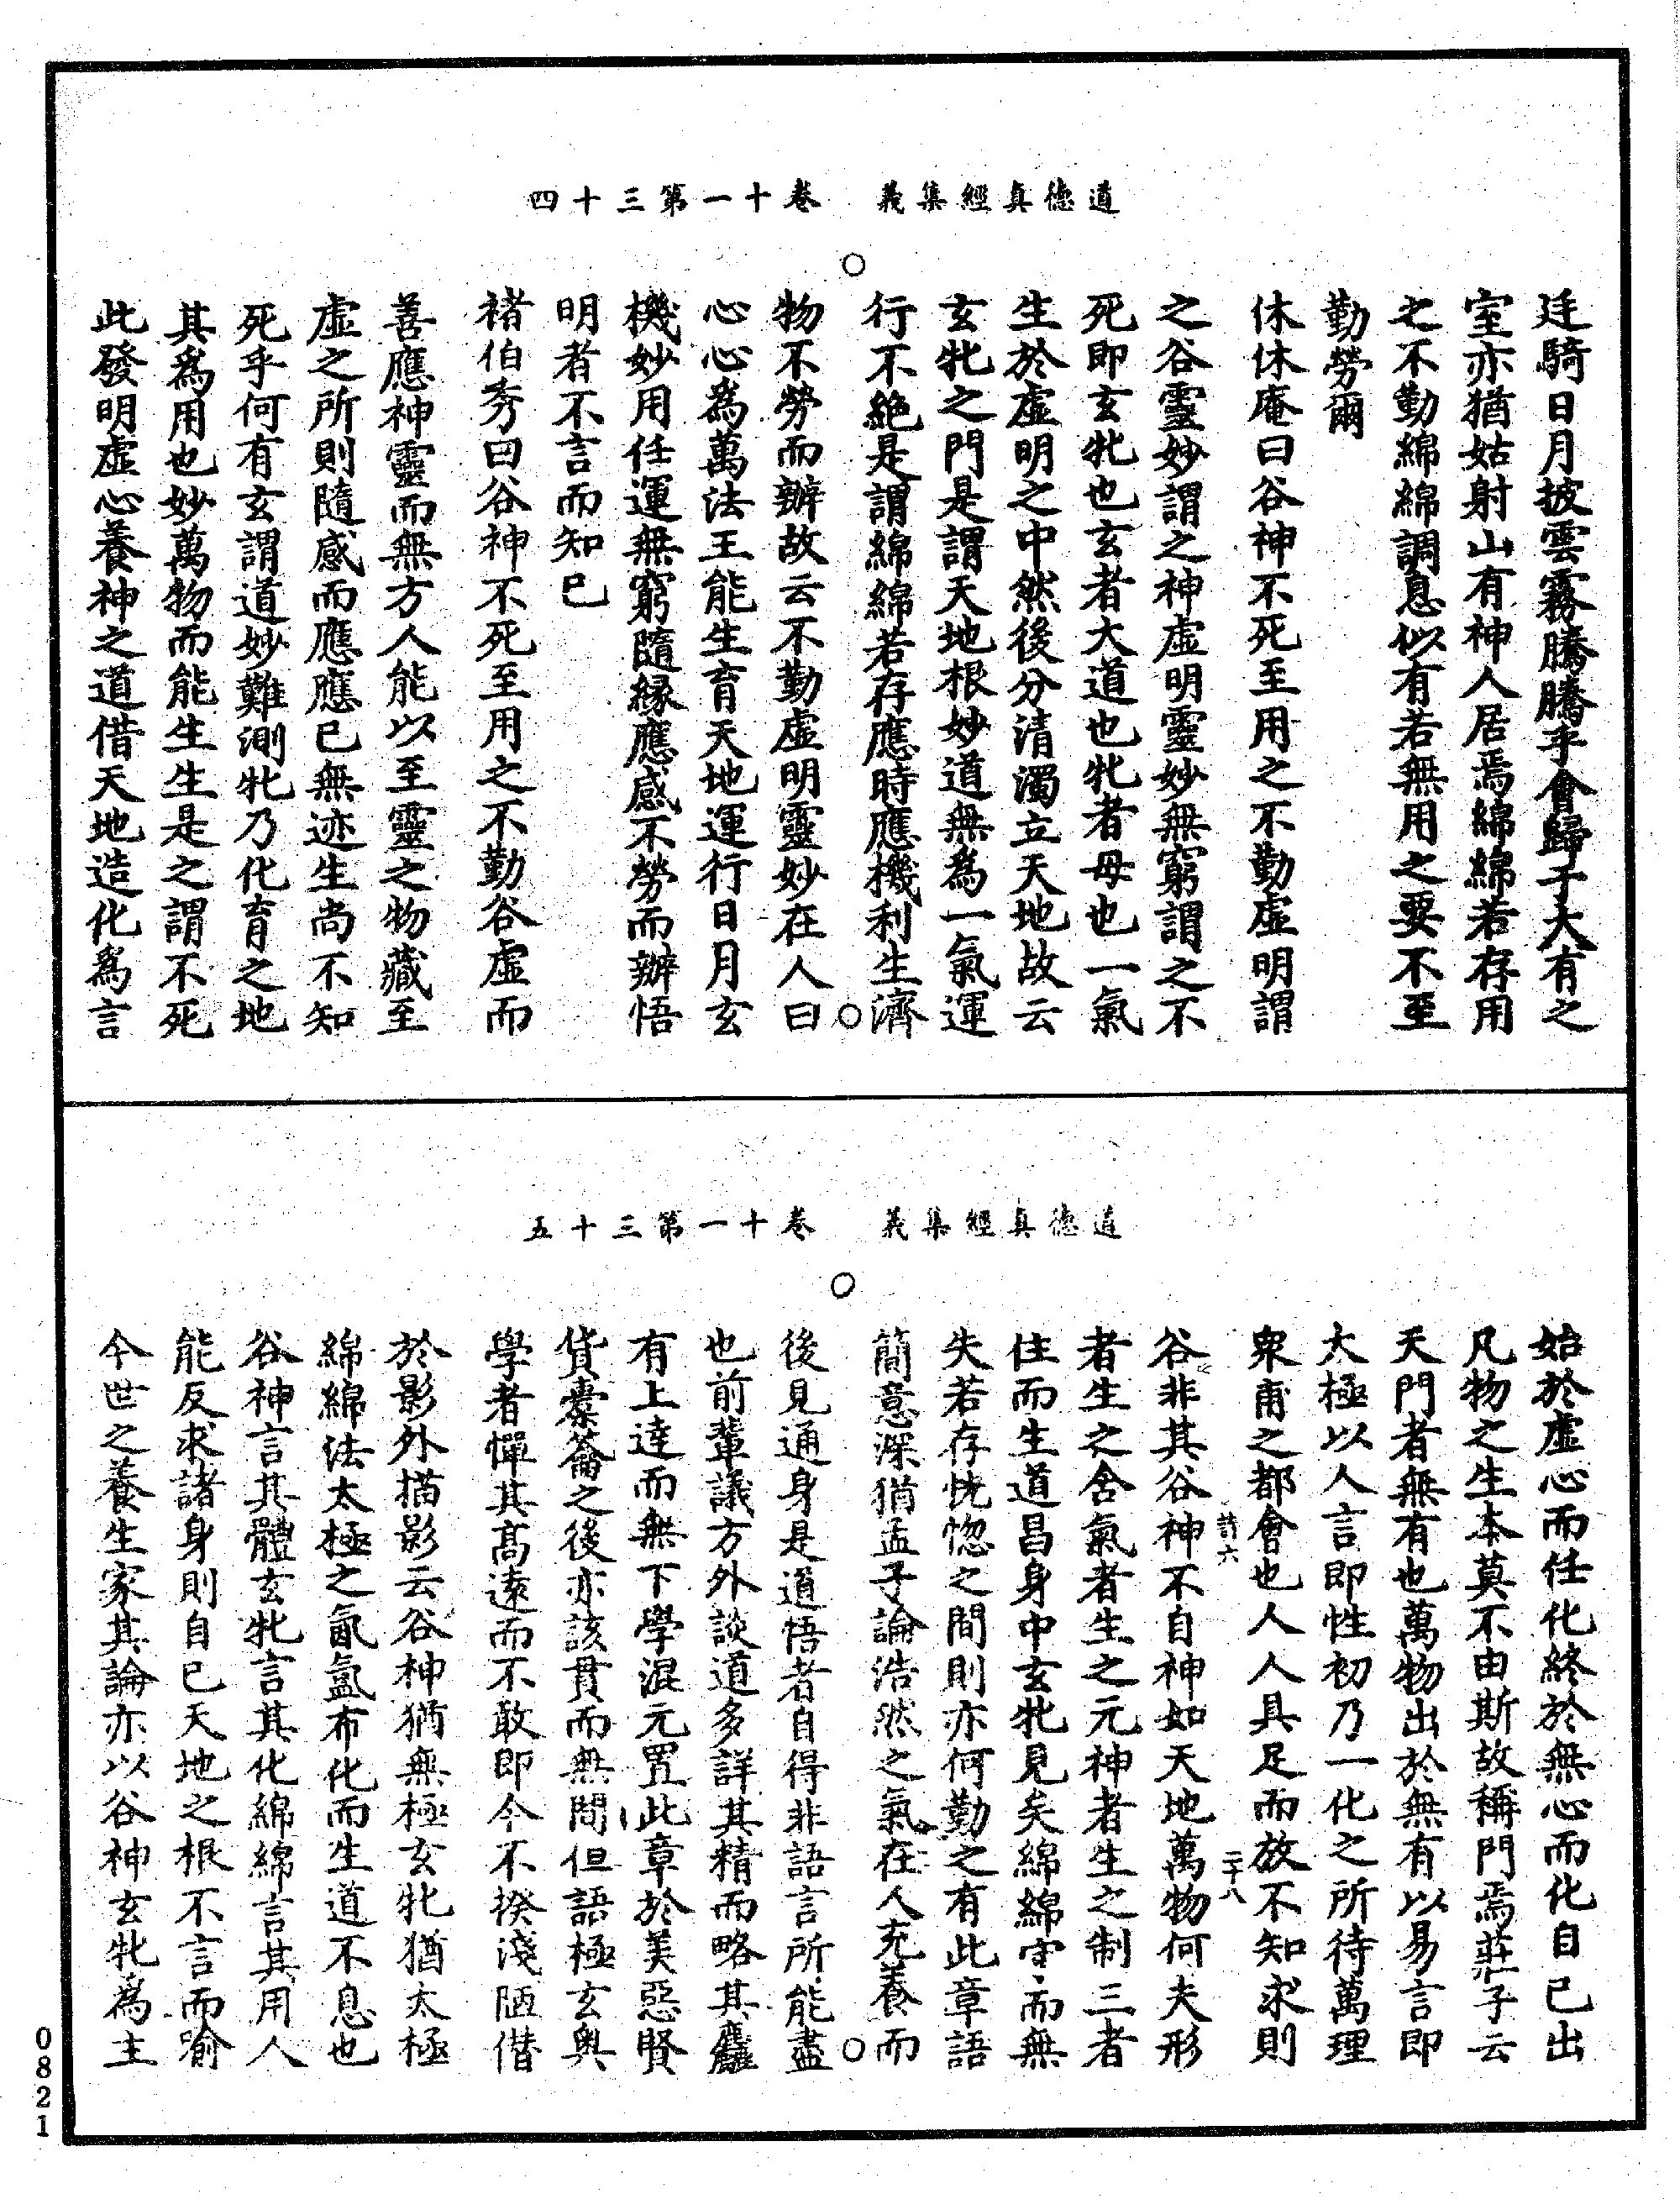 道德真經集義　卷十一第三十四
廷騎日月披雲霧騰騰乎會歸于大有之
室亦猶姑射山有神人居焉綿綿若存用
之不勤綿綿調息似有若無用之要不至
勤勞爾
休休庵曰谷神不死至用之不勤虛明謂
之谷靈妙謂之神虛明靈妙無窮謂之不
死即玄牝也玄者大道也牝者母也一氣
生於虛明之中然後分清濁立天地故云
玄牝之門是謂天地根妙道無為一氣運
行不絶是謂綿綿若存應時應機利生濟
物不勞而辦故云不勤虛明靈妙在人曰
心心為萬法王能生育天地運行日月玄
機妙用任運無窮隨緣應感不勞而辦悟
明者不言而知已
褚伯秀曰谷神不死至用之不勤谷虛而
善應神靈而無方人能以至靈之物藏至
虛之所則隨感而應應已無迹生尚不知
死乎何有玄謂道妙難測牝乃化育之地
其為用也妙萬物而能生生是之謂不死
此發明虛心養神之道借天地造化為言
道德真經集義　卷十一第三十五
始於虛心而任化終於無心而化自已出
凡物之生本莫不由斯故稱門焉莊子云
天門者無有也萬物出於無有以易言即
太極以人言即性初乃一化之所待萬理
衆甫之都會也人人具足而放不知求則
詩六　二十八
谷非其谷神不自神如天地萬物何夫形
者生之舍氣者生之元神者生之制三者
住而生道昌身中玄牝見矣綿綿守而無
失若存恍惚之間則亦何勤之有此章語
簡意深猶孟子論浩然之氣在人充養而
後見通身是道悟者自得非語言所能盡
也前輩議方外談道多詳其精而略其麤
有上達而無下學混元置此章於美惡賢
貨橐籥之後亦該貫而無間但語極玄奥
學者憚其高遠而不敢即今不揆淺陋僭
於影外描影云谷神猶無極玄牝猶太極
綿綿法太極之氤氳布化而生道不息也
谷神言其體玄牝言其化綿綿言其用人
能反求諸身則自已天地之根不言而喻
今世之養生家其論亦以谷神玄牝為主
0821